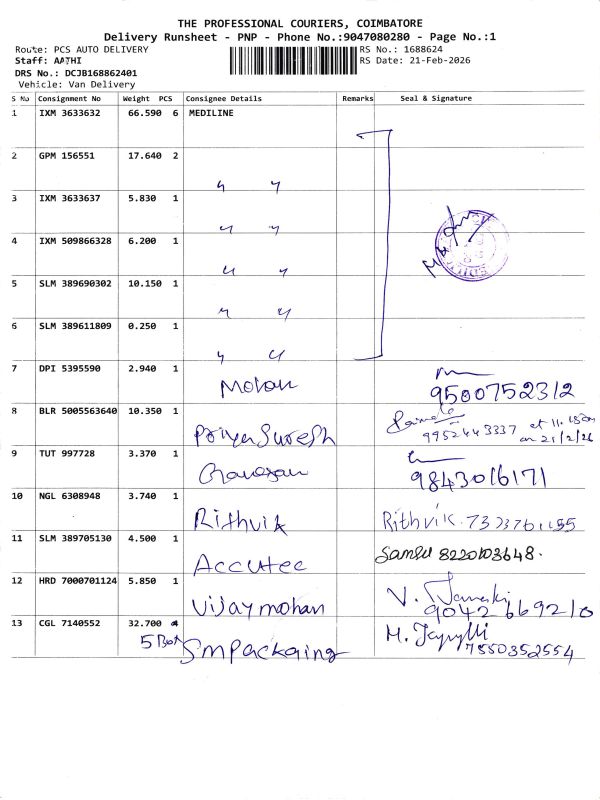 THE PROFESSIONAL COURIERS, COIMBATORE
Delivery Runsheet - PNP - Phone No.:9047080280 - Page No.:1
Route: PCS AUTO DELIVERY RS No.: 1688624
Staff: AATHI RS Date: 21-Feb-2026
DRS No.: DCJB168862401
Vehicle: Van Delivery
S No Consignment No Weight PCS Consignee Details Remarks Seal & Signature
1 IXM 3633632 66.590 6 MEDILINE
2 GPM 156551 17.640 2 " "
3 IXM 3633637 5.830 1 " "
4 IXM 509866328 6.200 1 " "
5 SLM 389690302 10.150 1 " "
6 SLM 389611809 0.250 1 " "
7 DPI 5395590 2.940 1 Mohan 9500752312
8 BLR 5005563640 10.350 1 Priya Suresh 9952443337 at 11.15am
on 21/2/26
9 TUT 997728 3.370 1 9843016171
10 NGL 6308948 3.740 1 Rithvik Rithvik.
11 SLM 389705130 4.500 1 Accutec 8220103648.
12 HRD 7000701124 5.850 1 Vijay mohan V.
9042669210
13 CGL 7140552 32.700 M.
5 Box Sm Packaing 7550352554